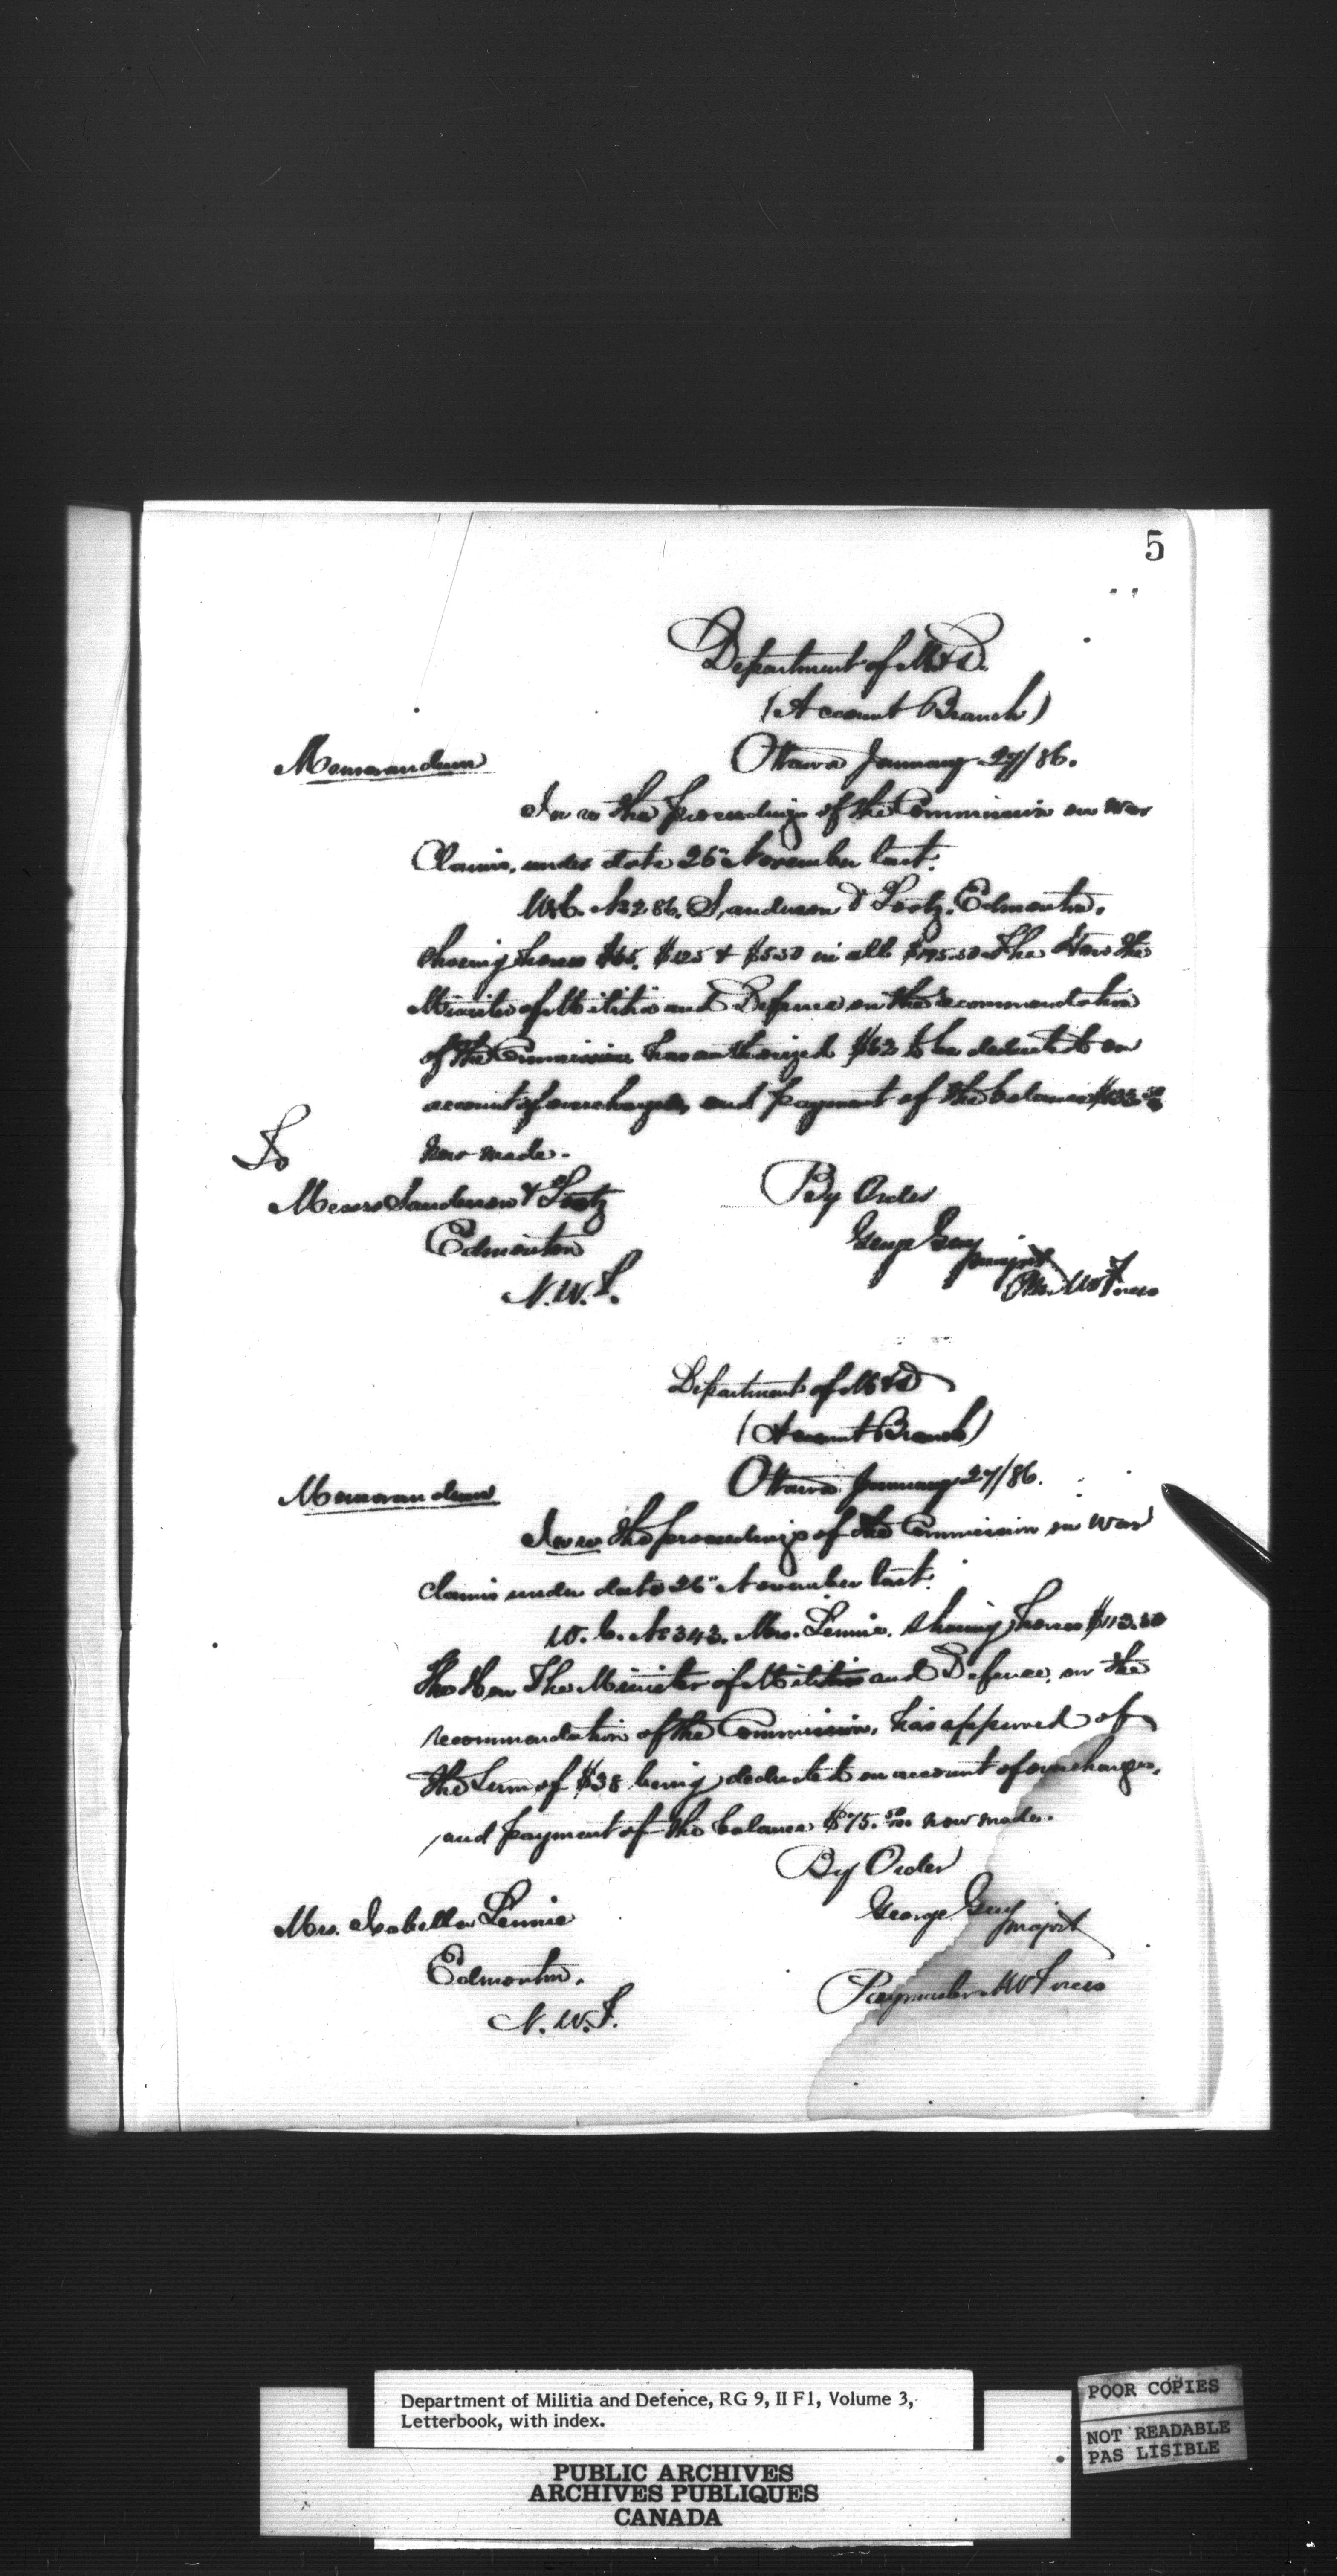 5
Department of M & D.
(Account Branch)
Ottawa January 27/86.
Memorandum
In re the proceedings of the Commission on War
Claims, under date 26" November last.
W.C. No 286. Sanderson & Lootz. Edmonton.
Shoeing horses $65. $125 & $5.50 in all $195.50 The Hon the
Minister of Militia and Defence on the recommendation
of the Commission has authorized $62 to be deducted on
account of overcharges, and payment of the balance $133.50
now made.
To
Messrs Sanderson & Lootz
Edmonton
N.W.T.
By Order
George Guy
Major
P.M. N W Forces
Department of M & D
(Account Branch)
Ottawa January 27/86.
Memorandum
In re the proceedings of the Commission on War
Claims under date 26" November last.
W.C. No 343. Mrs. Lennie. Shoeing horses $113.50
The Hon The Minister of Militia and Defence, on the
recommendation of the Commission, has approved of
the Sum of $38 being deducted on account of overcharges,
and payment of the balance $75.50 now made.
By Order
George Guy
Major
Paymaster N W Forces
Mrs. Isabella Lennie
Edmonton.
N.W.T.
Department of Militia and Defence, RG 9, II F1, Volume 3,
Letterbook, with index.
PUBLIC ARCHIVES
ARCHIVES PUBLIQUES
CANADA
POOR COPIES
NOT READABLE
PAS LISIBLE